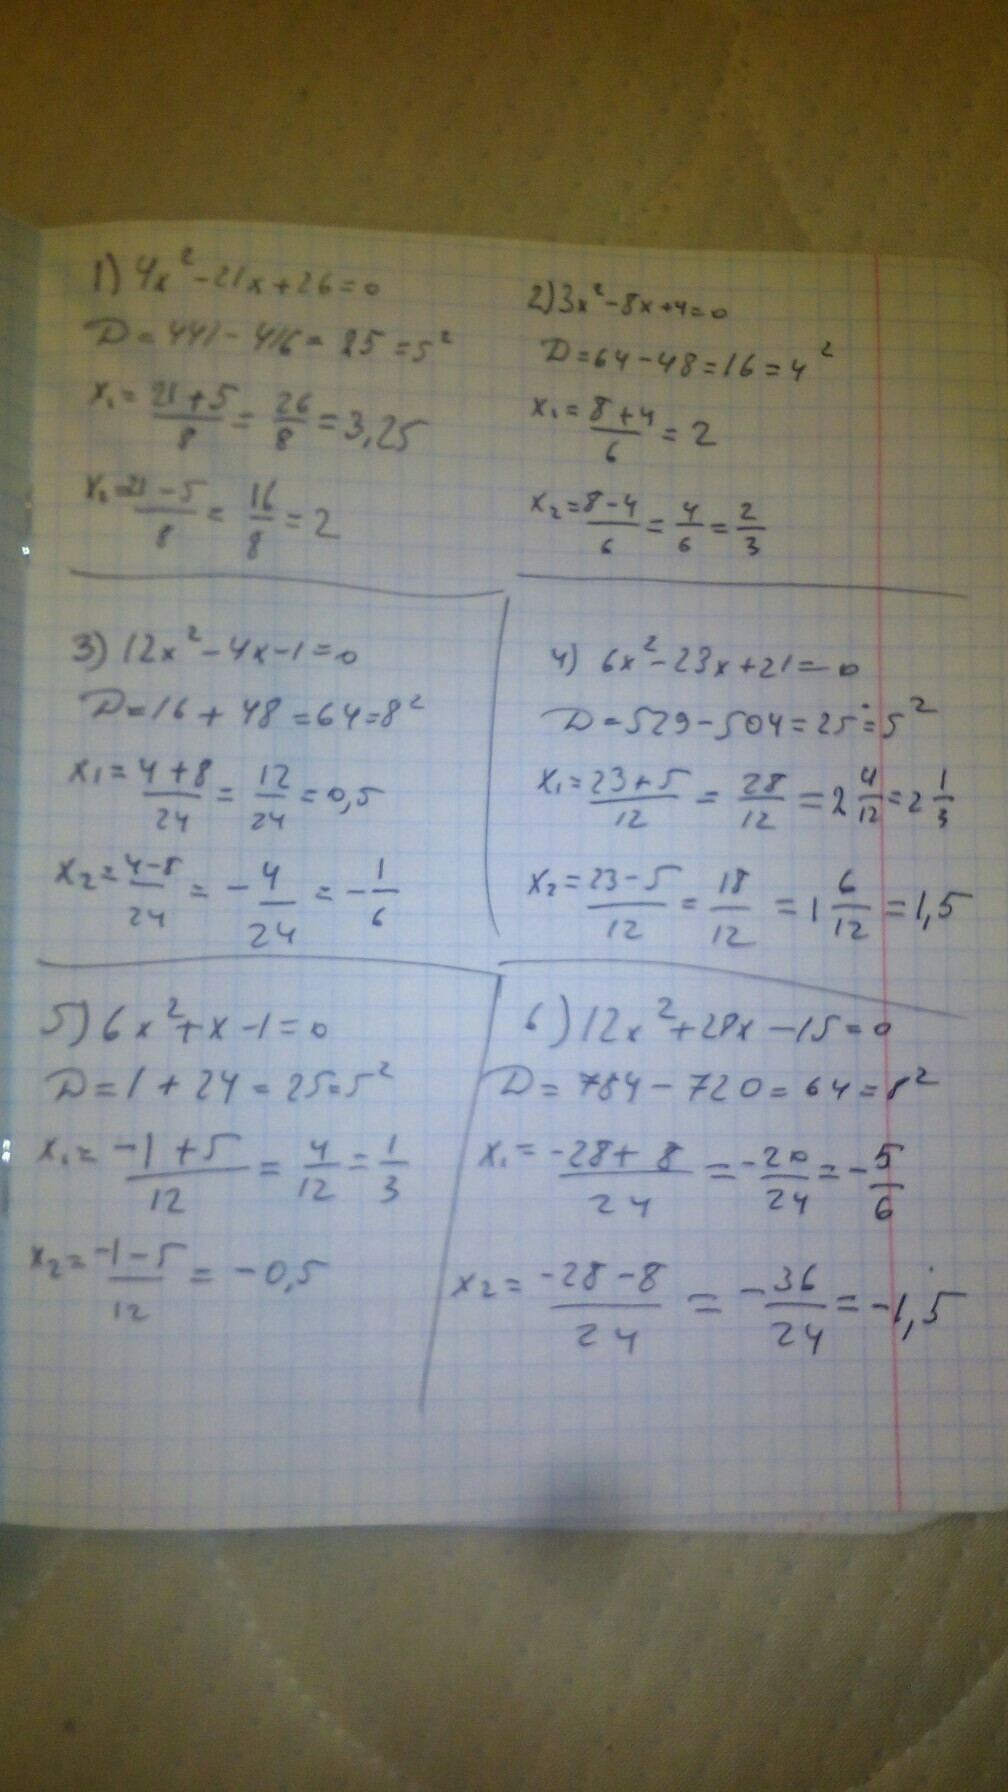 1) 4x² - 21x + 26 = 0
D = 441 - 416 = 25 = 5²
x₁ = (21 + 5)/8 = 26/8 = 3,25
x₂ = (21 - 5)/8 = 16/8 = 2
2) 3x² - 8x + 4 = 0
D = 64 - 48 = 16 = 4²
x₁ = (8 + 4)/6 = 2
x₂ = (8 - 4)/6 = 4/6 = 2/3
3) 12x² - 4x - 1 = 0
D = 16 + 48 = 64 = 8²
x₁ = (4 + 8)/24 = 12/24 = 0,5
x₂ = (4 - 8)/24 = -4/24 = -1/6
4) 6x² - 23x + 21 = 0
D = 529 - 504 = 25 = 5²
x₁ = (23 + 5)/12 = 28/12 = 2 4/12 = 2 1/3
x₂ = (23 - 5)/12 = 18/12 = 1 6/12 = 1,5
5) 6x² + x - 1 = 0
D = 1 + 24 = 25 = 5²
x₁ = (-1 + 5)/12 = 4/12 = 1/3
x₂ = (-1 - 5)/12 = -0,5
6) 12x² + 28x - 15 = 0
D = 784 - 720 = 64 = 8²
x₁ = (-28 + 8)/24 = -20/24 = -5/6
x₂ = (-28 - 8)/24 = -36/24 = -1,5